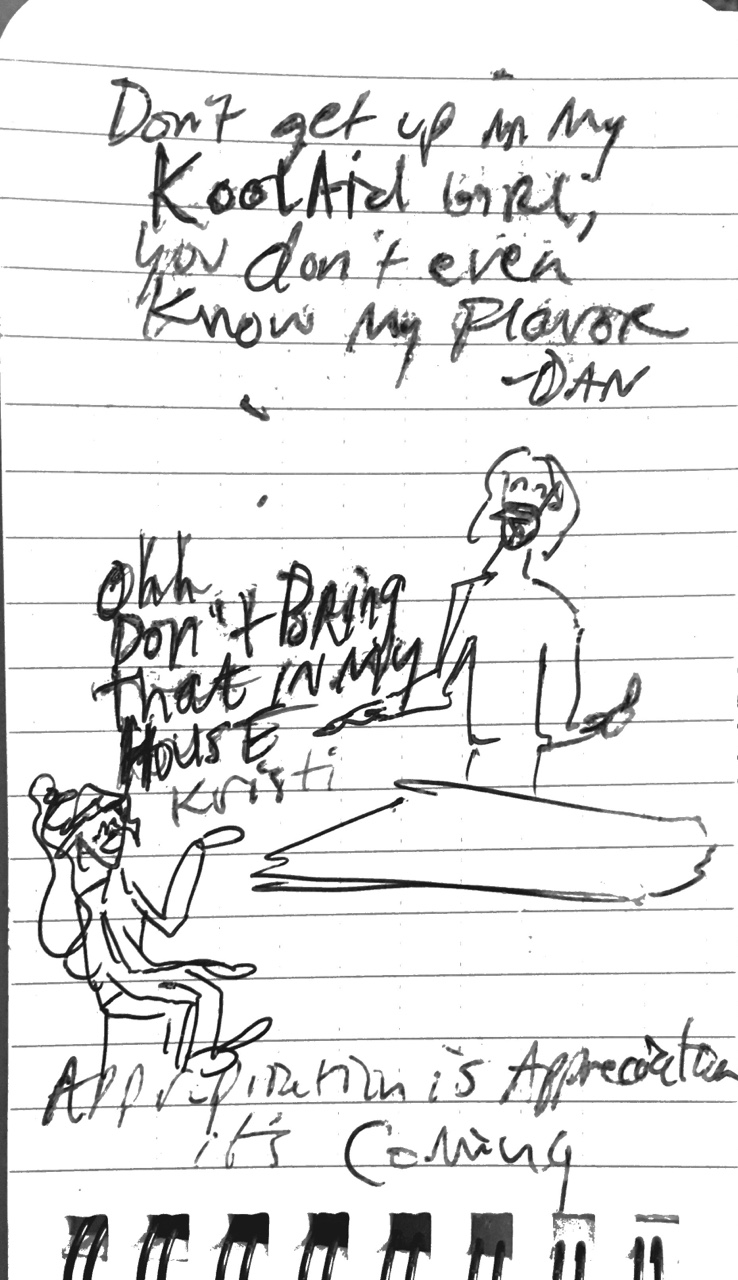 Don't get up in my
KoolAid GIRL,
you don't even
know my FlavoR
-DAN
Ohh
Don't BRing
that IN My
HousE
Kristi
Appropriation is Appreciation
it's Coming